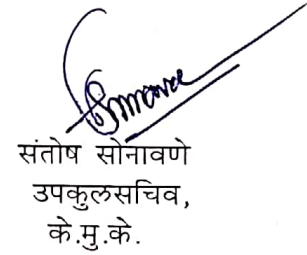 संतोष सोनावणे
उपकुलसचिव,
के.मु.के.